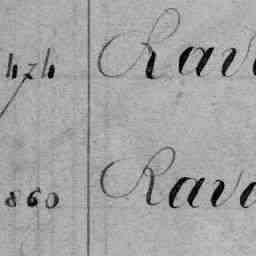 474 Rav
860 Rava